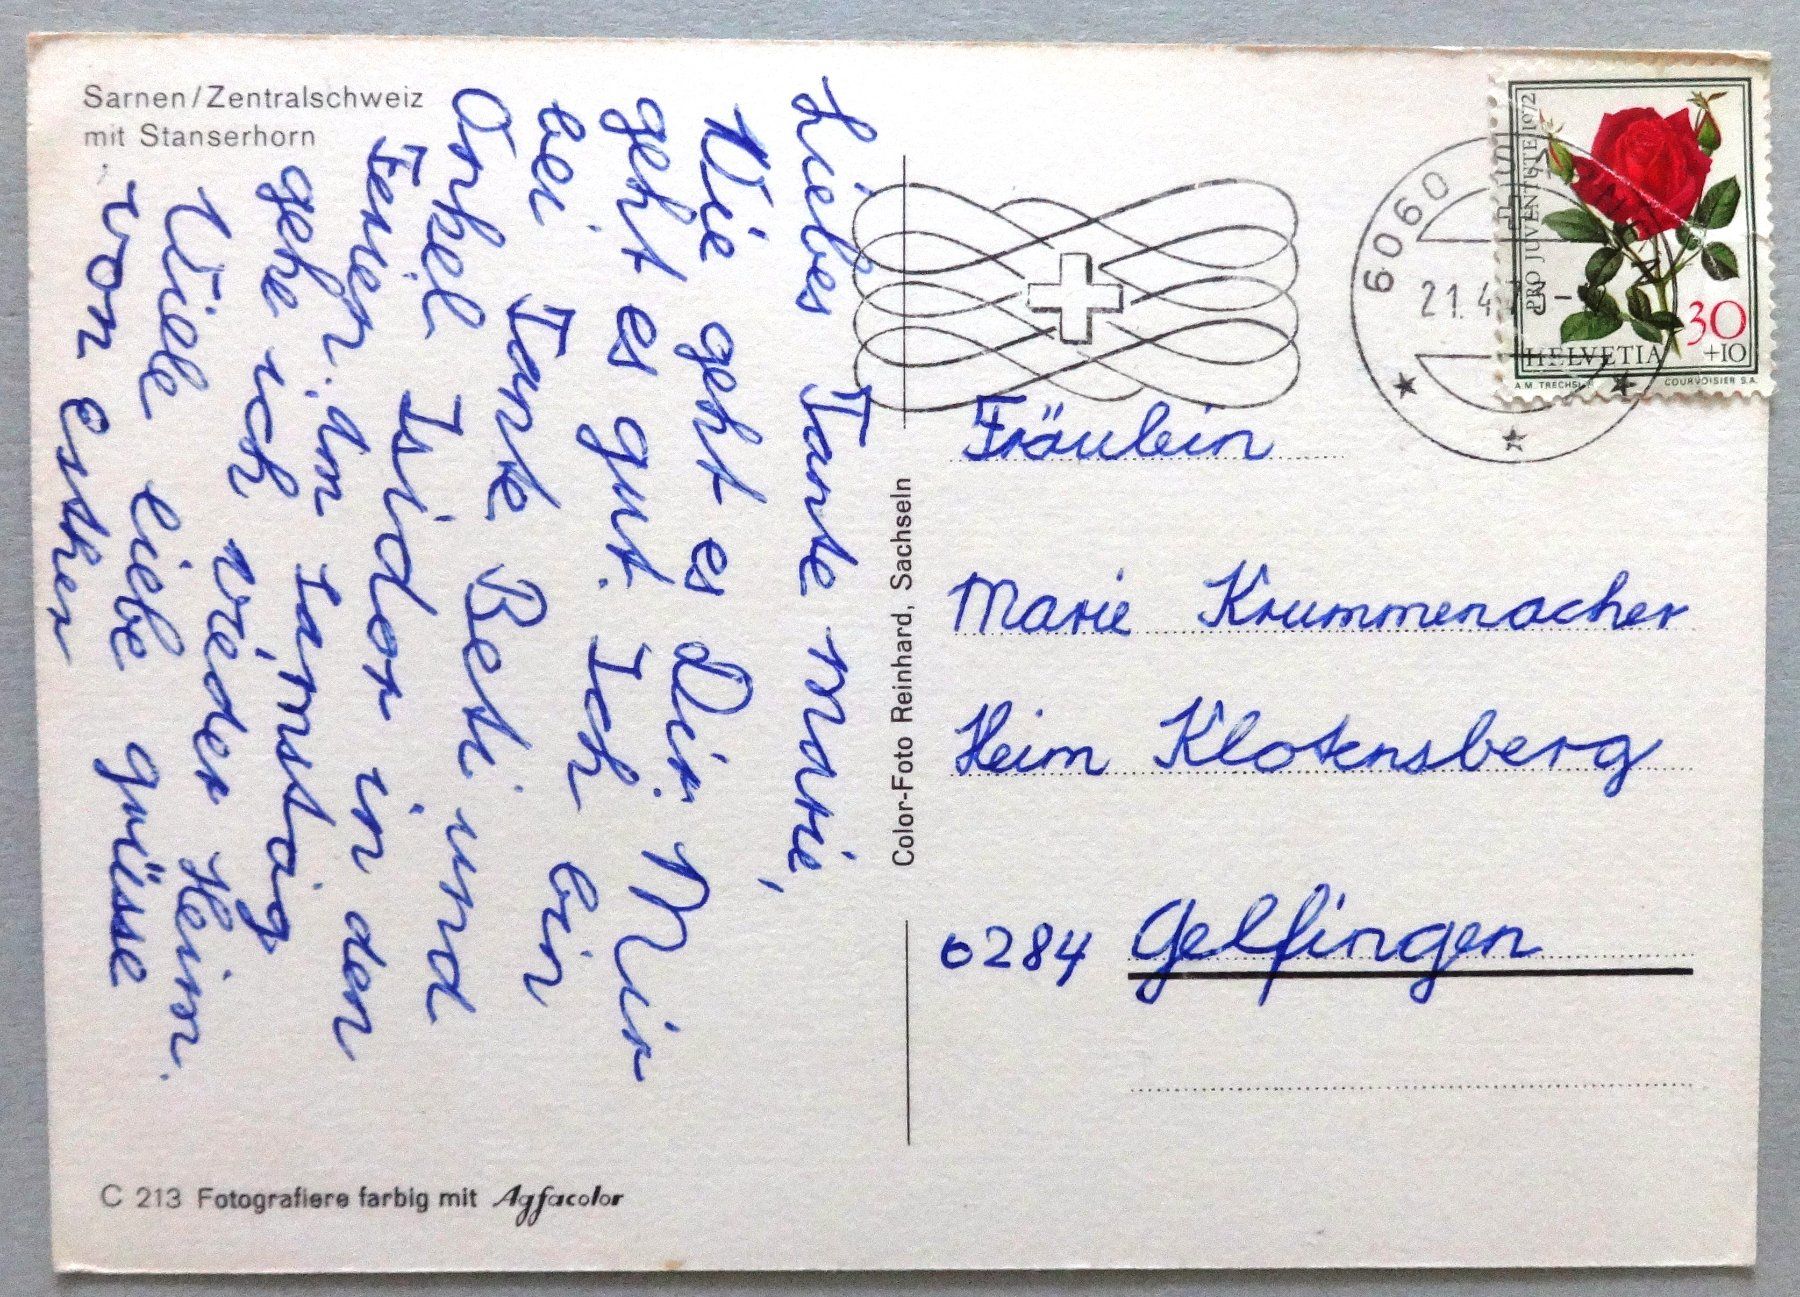 Sarnen/Zentralschweiz
mit Stanserhorn
Liebes Tante Marie,
Wie geht es Dir. Mir
geht es gut. Ich bin
bei Tante Beti und
Onkel Isidor in den
Ferien. Am Samstag
gehe ich wieder Heim.
Viele liebe grüsse
von esther
C 213 Fotografiere farbig mit Agfacolor
Color-Foto Reinhard, Sachseln
6060
21.4.73-
PRO JUVENTUTE 1972
30
+10
HELVETIA
COURVOISIER S.A.
Fräulein
Marie Krummenacher
Heim Klotensberg
6284 Gelfingen